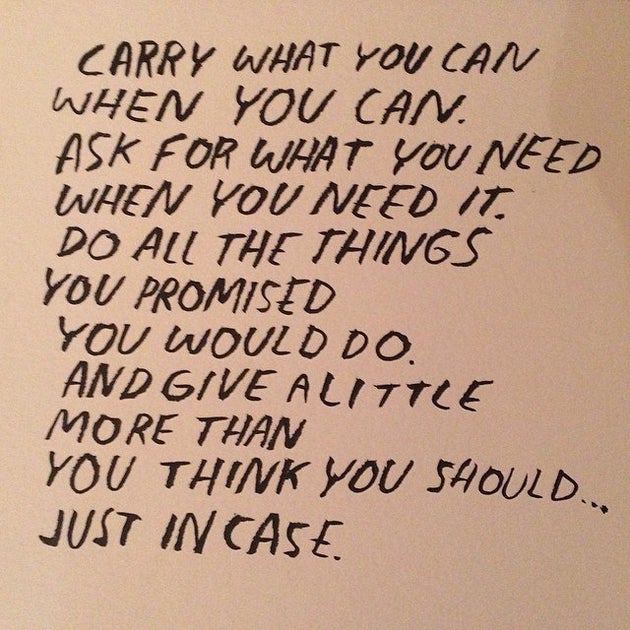 CARRY WHAT YOU CAN
WHEN YOU CAN.
ASK FOR WHAT YOU NEED
WHEN YOU NEED IT.
DO ALL THE THINGS
YOU PROMISED
YOU WOULD DO.
AND GIVE A LITTLE
MORE THAN
YOU THINK YOU SHOULD...
JUST IN CASE.